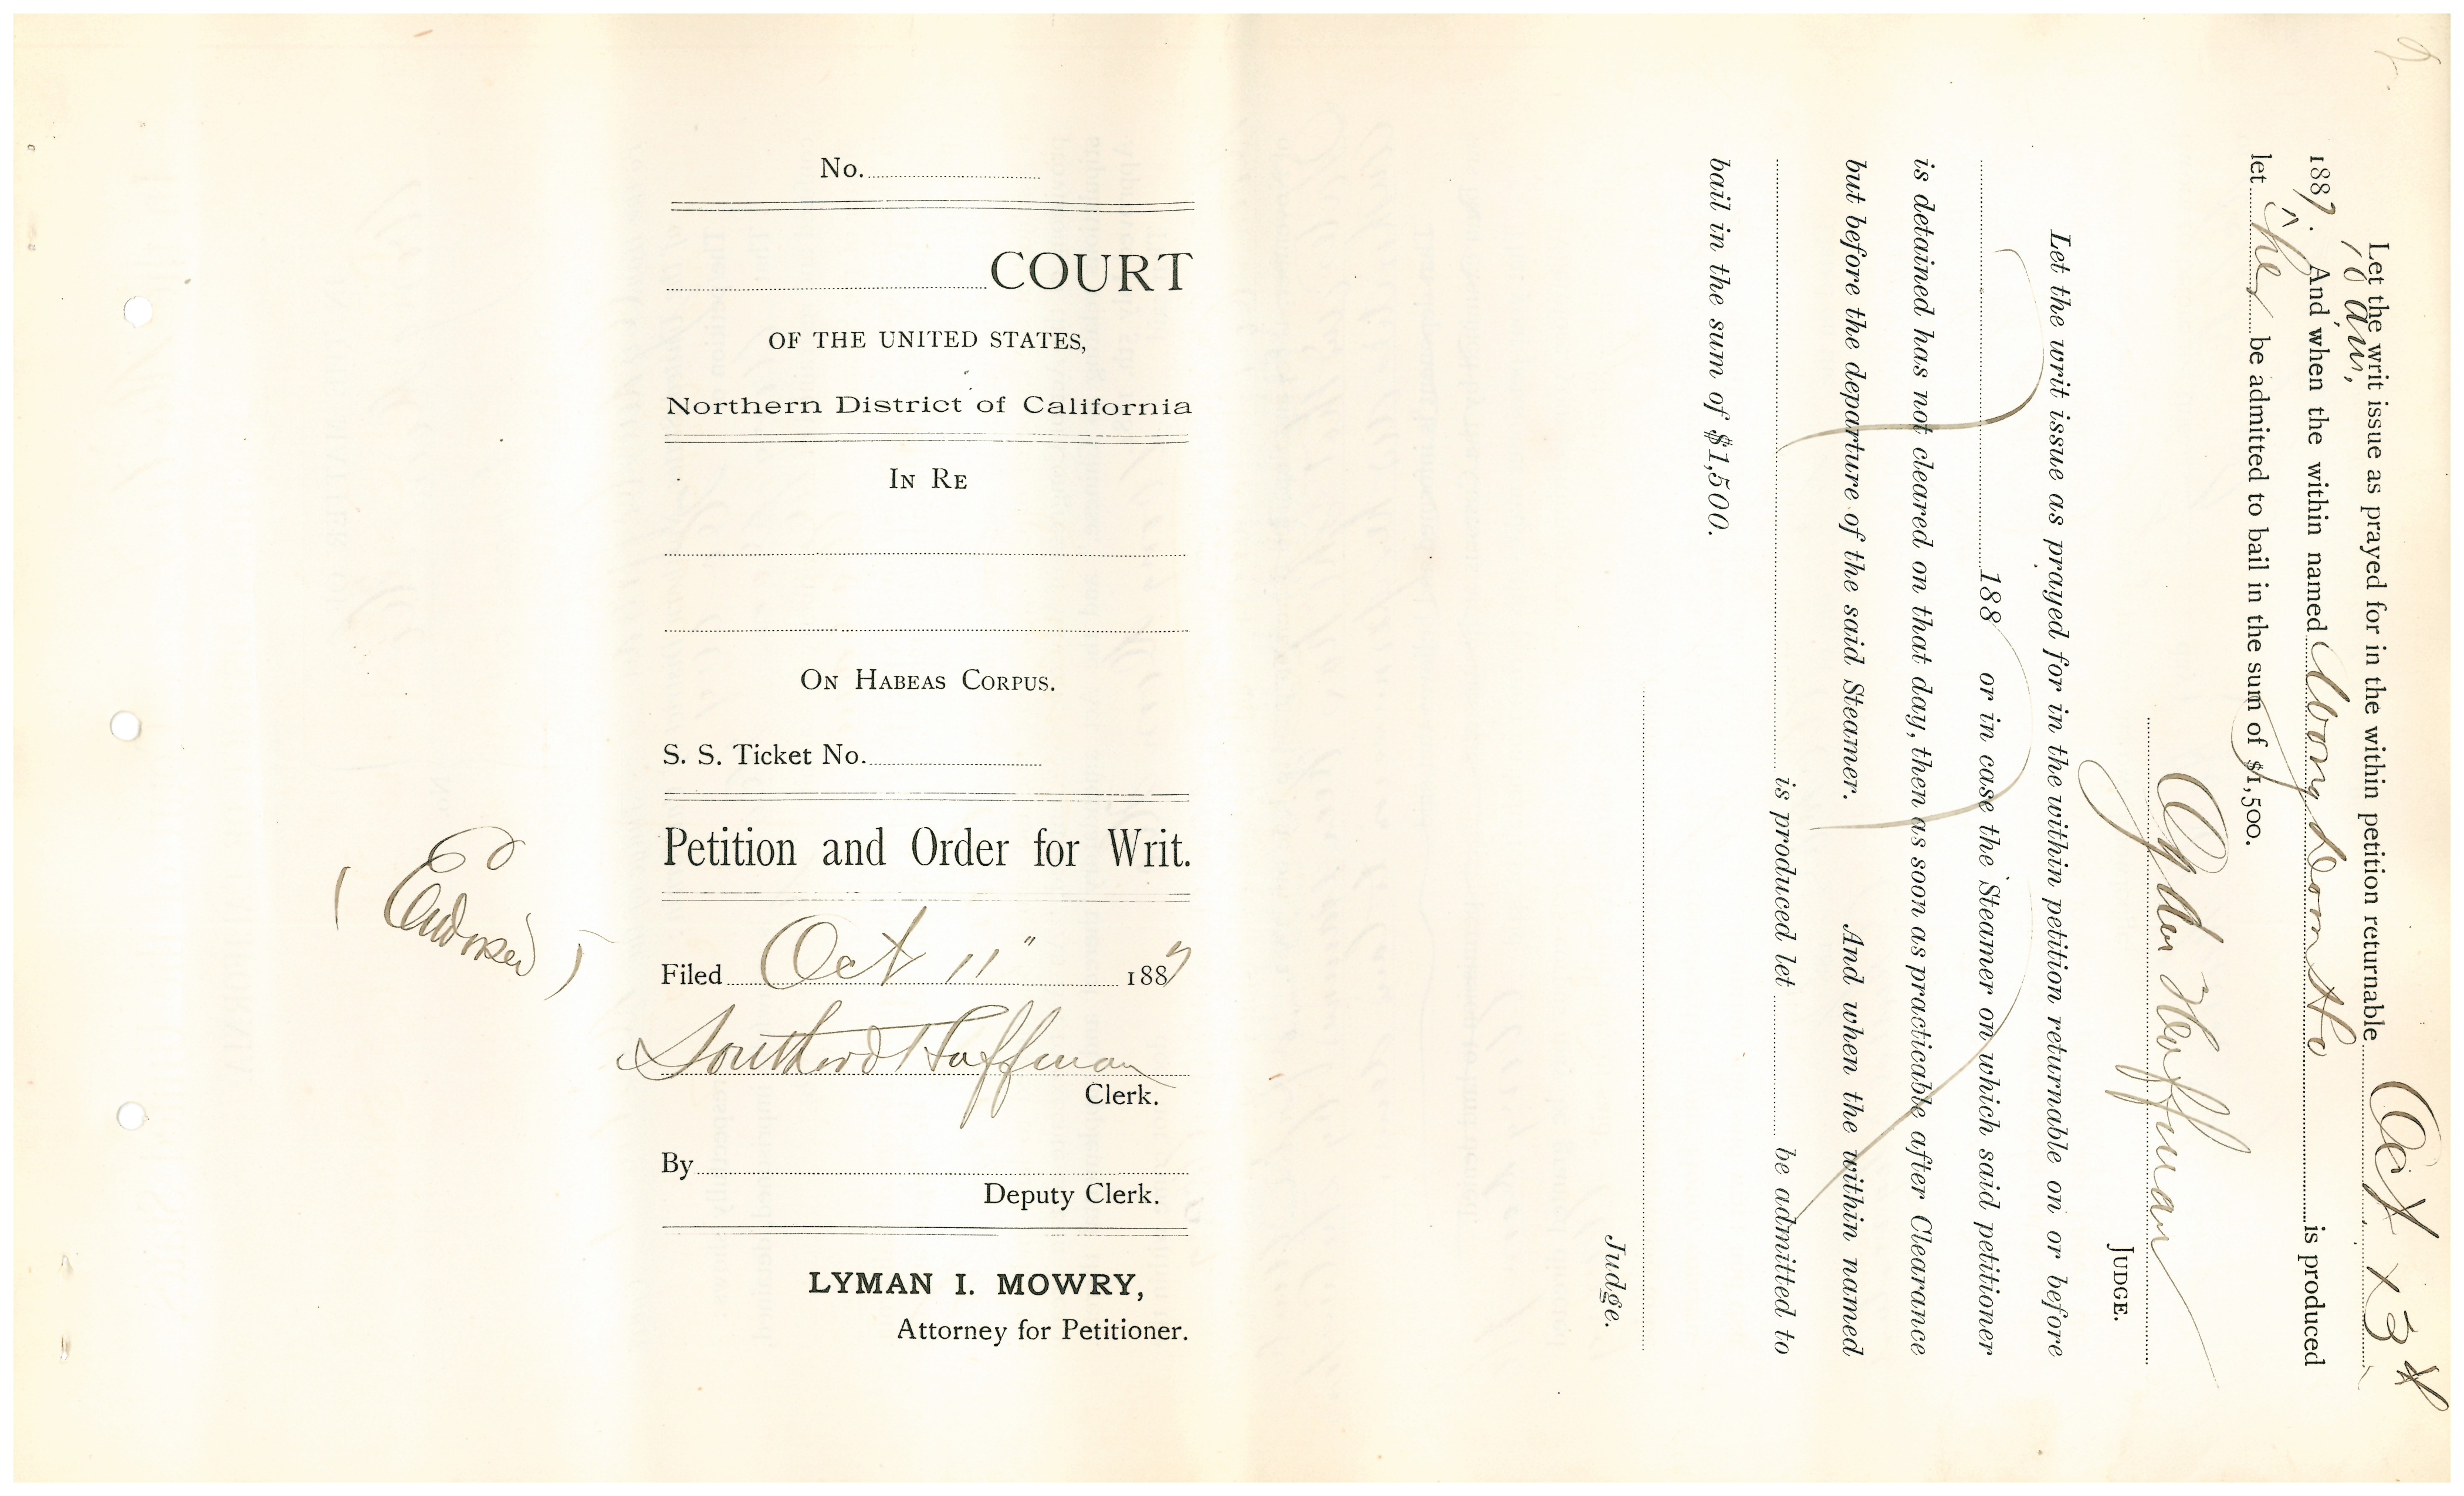 No.
COURT
OF THE UNITED STATES,
Northern District of California
IN RE
ON HABEAS CORPUS.
S. S. Ticket No.
Petition and Order for Writ.
Filed Oct 11" 1887
Southard Hoffman
Clerk.
By
Deputy Clerk.
LYMAN I. MOWRY,
Attorney for Petitioner.
(Endorsed)
Let the writ issue as prayed for in the within petition returnable Oct
10 am,
1887. And when the within named Wong is produced
let her be admitted to bail in the sum of $1,500.
Ogden Hoffman
JUDGE.
Let the writ issue as prayed for in the within petition returnable on or before
188 or in case the Steamer on which said petitioner
is detained has not cleared on that day, then as soon as practicable after Clearance
but before the departure of the said Steamer. And when the within named
is produced let be admitted to
bail in the sum of $1,500.
Judge.